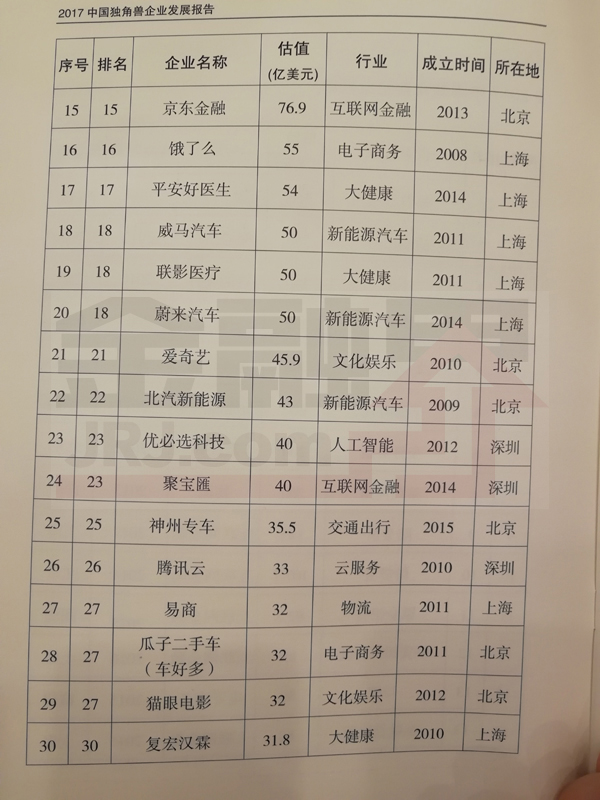 2017 中国独角兽企业发展报告
序号 排名 企业名称 估值 (亿美元) 行业 成立时间 所在地
15 15 京东金融 76.9 互联网金融 2013 北京
16 16 饿了么 55 电子商务 2008 上海
17 17 平安好医生 54 大健康 2014 上海
18 18 威马汽车 50 新能源汽车 2011 上海
19 18 联影医疗 50 大健康 2011 上海
20 18 蔚来汽车 50 新能源汽车 2014 上海
21 21 爱奇艺 45.9 文化娱乐 2010 北京
22 22 北汽新能源 43 新能源汽车 2009 北京
23 23 优必选科技 40 人工智能 2012 深圳
24 23 聚宝匯 40 互联网金融 2014 深圳
25 25 神州专车 35.5 交通出行 2015 北京
26 26 腾讯云 33 云服务 2010 深圳
27 27 易商 32 物流 2011 上海
28 27 瓜子二手车 (车好多) 32 电子商务 2011 北京
29 27 猫眼电影 32 文化娱乐 2012 北京
30 30 复宏汉霖 31.8 大健康 2010 上海
金融界
JRJ.com